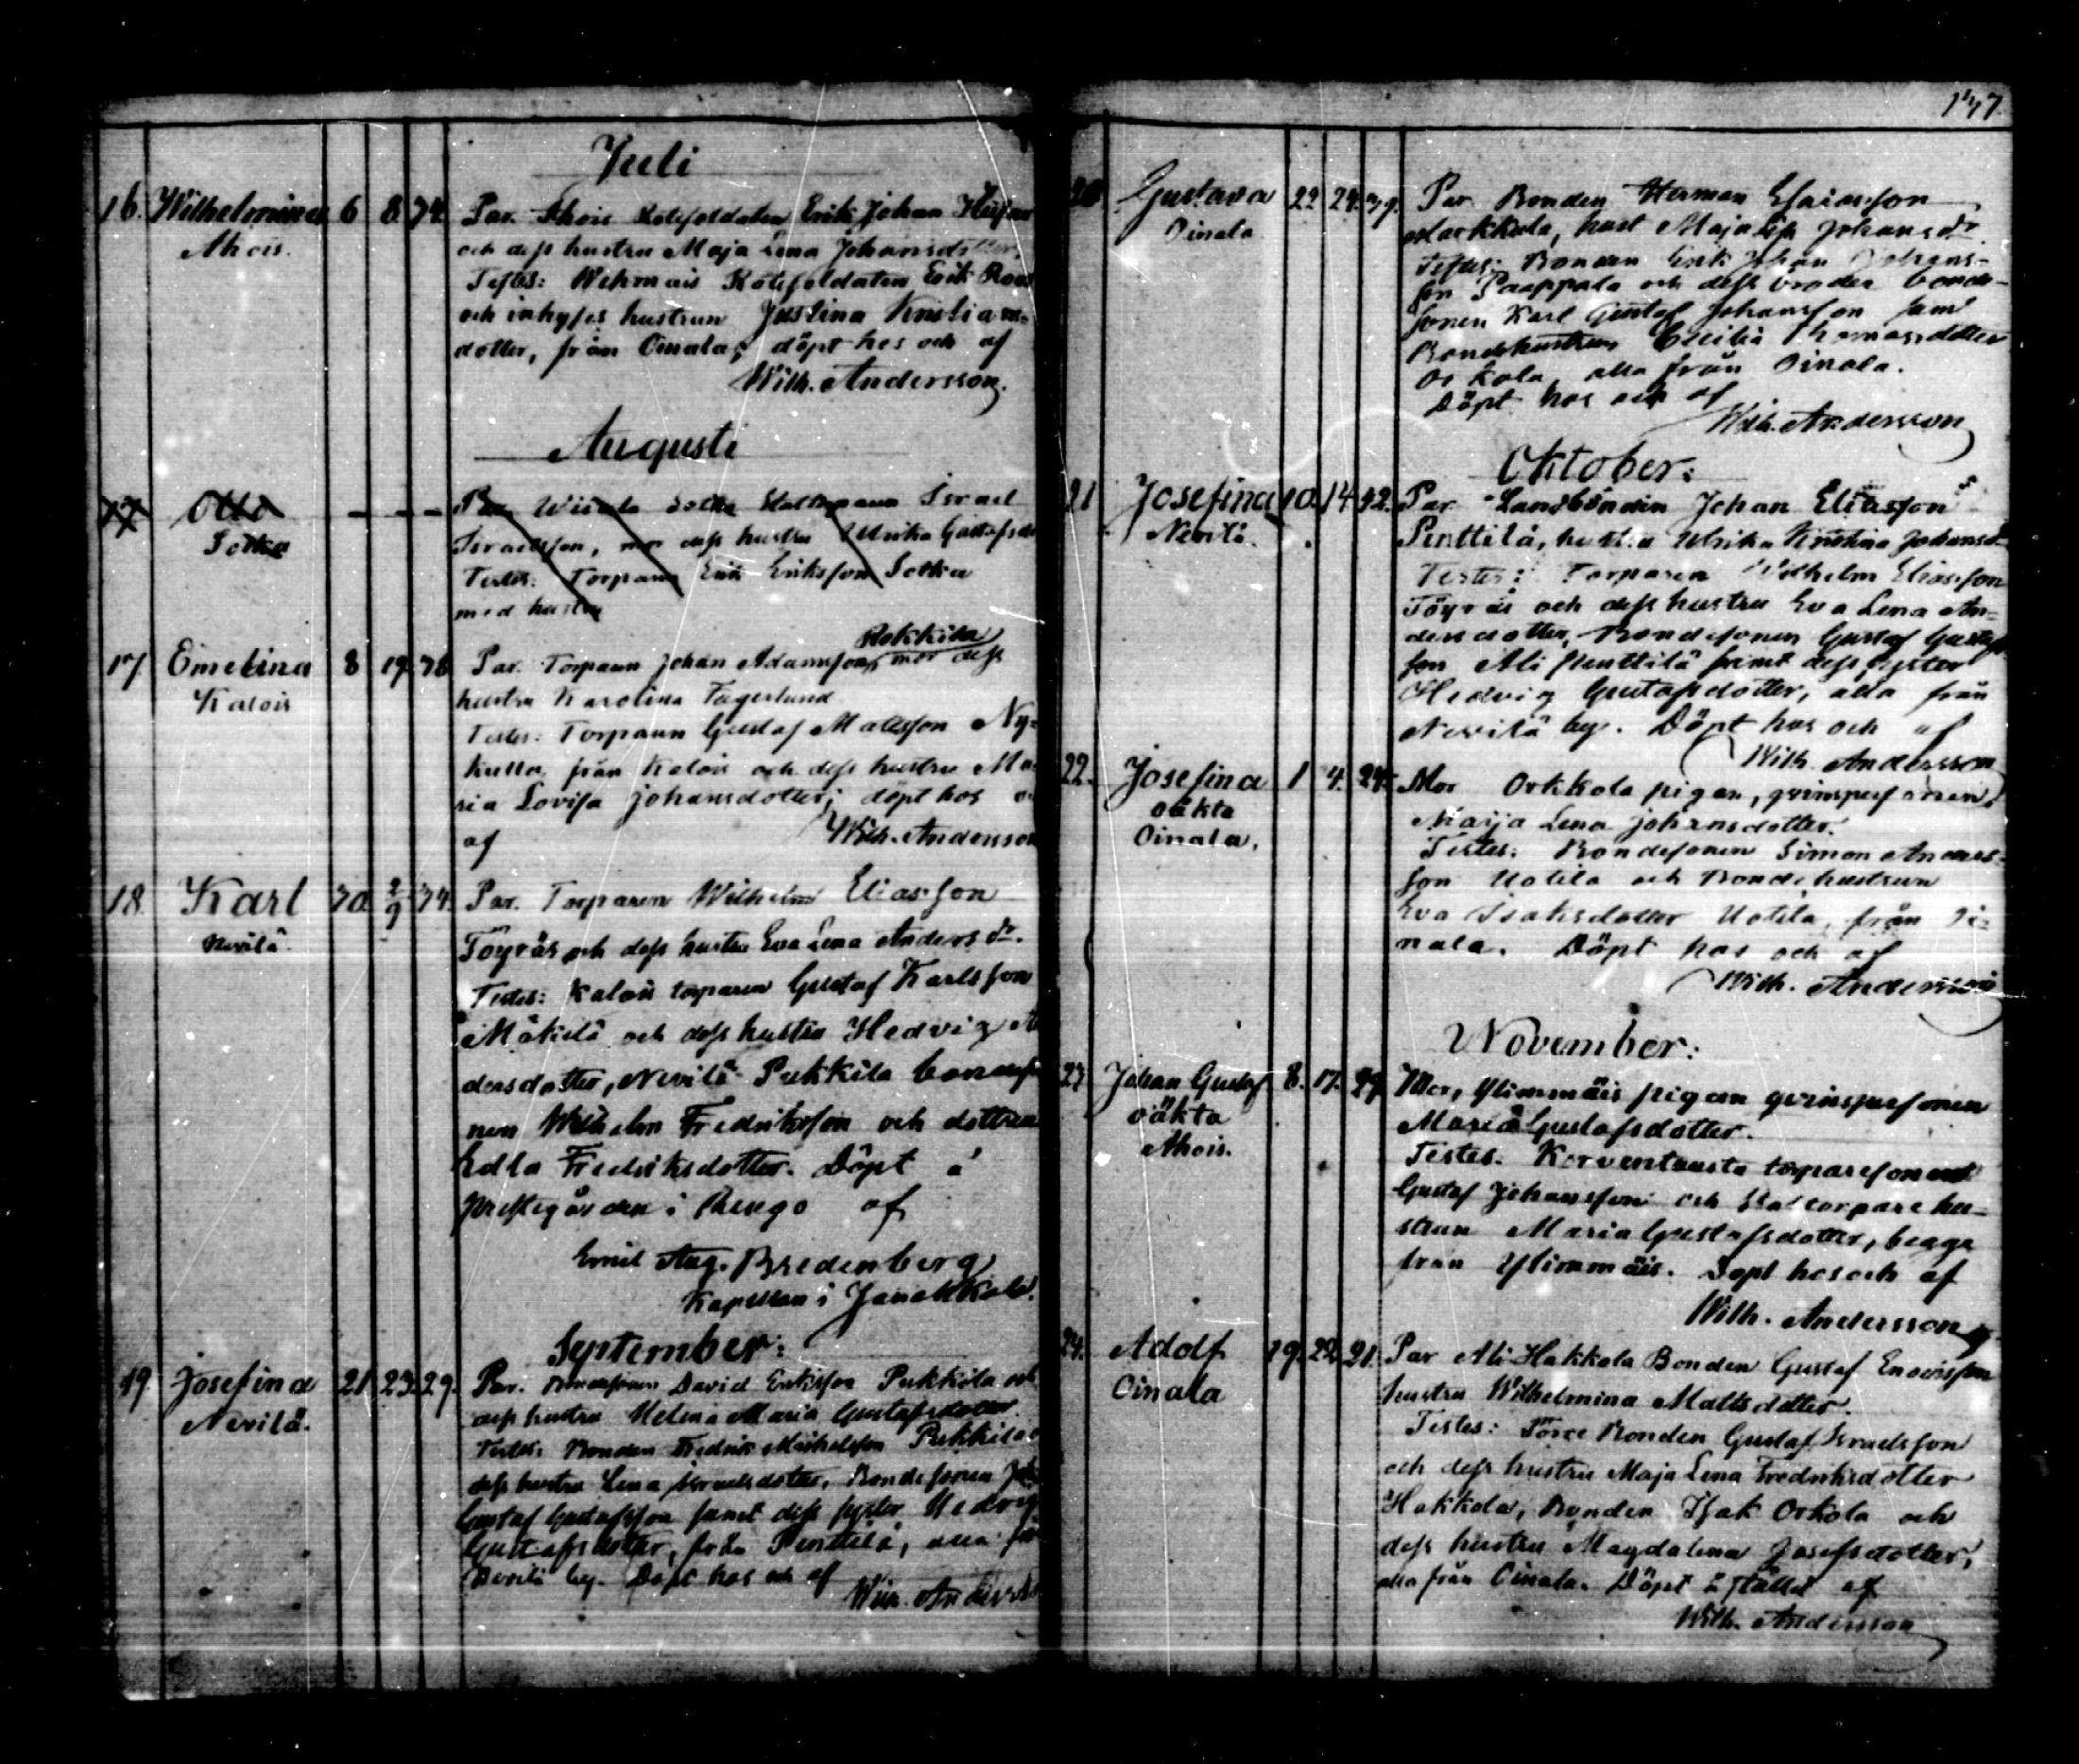 147.
Juli
16. Wilhelmina 6 8. 34. Par. Ahois Rotesoldaten Erik Johan
Ahois. och dess hustru Maja Lena Johansdotter,
Testes: Wehmais Rotesoldaten Erik
och inhyses hustrun Justina Kristians-
dotter, från Oinala; döpt hos och af
Wilh. Andersson.
Augusti
17 Otto - - - Par Sotka Israel
Sotka Israelsson, mor dess hustru Ulrika Gustafsd
Testes: Torparn Erik Eriksson Sotka
med hustru
Rekkilä
17. Emelina 8 19. 36 Par. Torparn Johan Adamsson, mor dess
Kalois hustru Karolina Fagerlund.
Testes: Torparn Gustaf Matsson Ny-
kulla, från Kalois och dess hustru Ma-
ria Lovisa Johansdotter; döpt hos o
af Wilh. Andersson
18. Karl 30 2/9 34. Par. Torparen Wilhelm Eliasson
Nevilä. Töyräs och dess hustru Eva Lena Andersdr.
Testes: Kalois torparen Gustaf Karlsson
Mäkelä och dess hustru Hedvig A
dersdotter, Nevilä Pukkila bondeso
nen Wilhelm Fredriksson och dottren
Edla Fredriksdotter. Döpt å
prestegården i Rengo af
Emil Aug. Bredenberg
Kapellan i Janakkala.
September:
19. Josefina 21. 23. 29. Par. Bondesonen David Eriksson Pukkila och
Nevilä. dess hustru Helena Maria Gustafsdotter.
Testes: Bonden Fredrik Mickelsson Pukkila o
dess hustru Lena Israelsdotter, Bondesonen Joh
Gustaf Gustafsson samt dess syster Hedvig
Gustafsdotter, från Penttilä, alla
Nevilä by. Döpt hos och af
Wilh. Anderss
20 Gustava 22 24. 39. Par. Bonden Herman Esaiasson
Oinala Markkola, hust Maja Lisa Johansdr.
Testes: Bonden Erik Johan Johans-
son Paappala och dess broder bonde-
sonen Karl Gustaf Johansson samt
Bondehustrun Cecilia Thomasdotter
Orkola, alla från Oinala.
Döpt hos och af
Wilh. Andersson
Oktober:
21 Josefina 10. 14. 42. Par. Landbonden Johan Eliasson
Nevilä. Penttilä, hustru Ulrika Kristina Johansdr
Testes: Torparen Wilhelm Eliasson
Töyräs och dess hustru Eva Lena An-
dersdotter, Bondesonen Gustaf Gustafs
son Ali Penttilä samt dess syster
Hedvig Gustafsdotter, alla från
Nevilä by. Döpt hos och af
Wilh. Andersson
22. Josefina 1 4. 24. Mor Orkkola pigan, qvinspersonen
oäkta Maija Lena Johansdotter.
Oinala. Testes: Bondesonen Simon Anders-
son Uotila och Bondehustrun
Eva Isaksdotter Uotila, från Oi-
nala. Döpt hos och af
Wilh. Andersson
November:
23 Johan Gustaf 8. 17. 29. Mor, Ylimmäis pigan qvinspersonen
oäkta Maria Gustafsdotter.
Ahois. Testes. Korventausta torparesonen
Gustaf Johansson och Staltorpare hu-
strun Maria Gustafsdotter, begge
från Ylimmäis. Döpt hos och af
Wilh. Andersson
24. Adolf 19. 22. 21. Par Ali Hakkola Bonden Gustaf
Oinala hustru Wilhelmina Mattsdotter.
Testes: Bonden Gustaf Israelsson
och dess hustru Maja Lena Fredriksdotter
Hakkola, Bonden Isak Orkola och
dess hustru Magdalena Josefsdotter,
alla från Oinala. Döpt i stället af
Wilh. Andersson